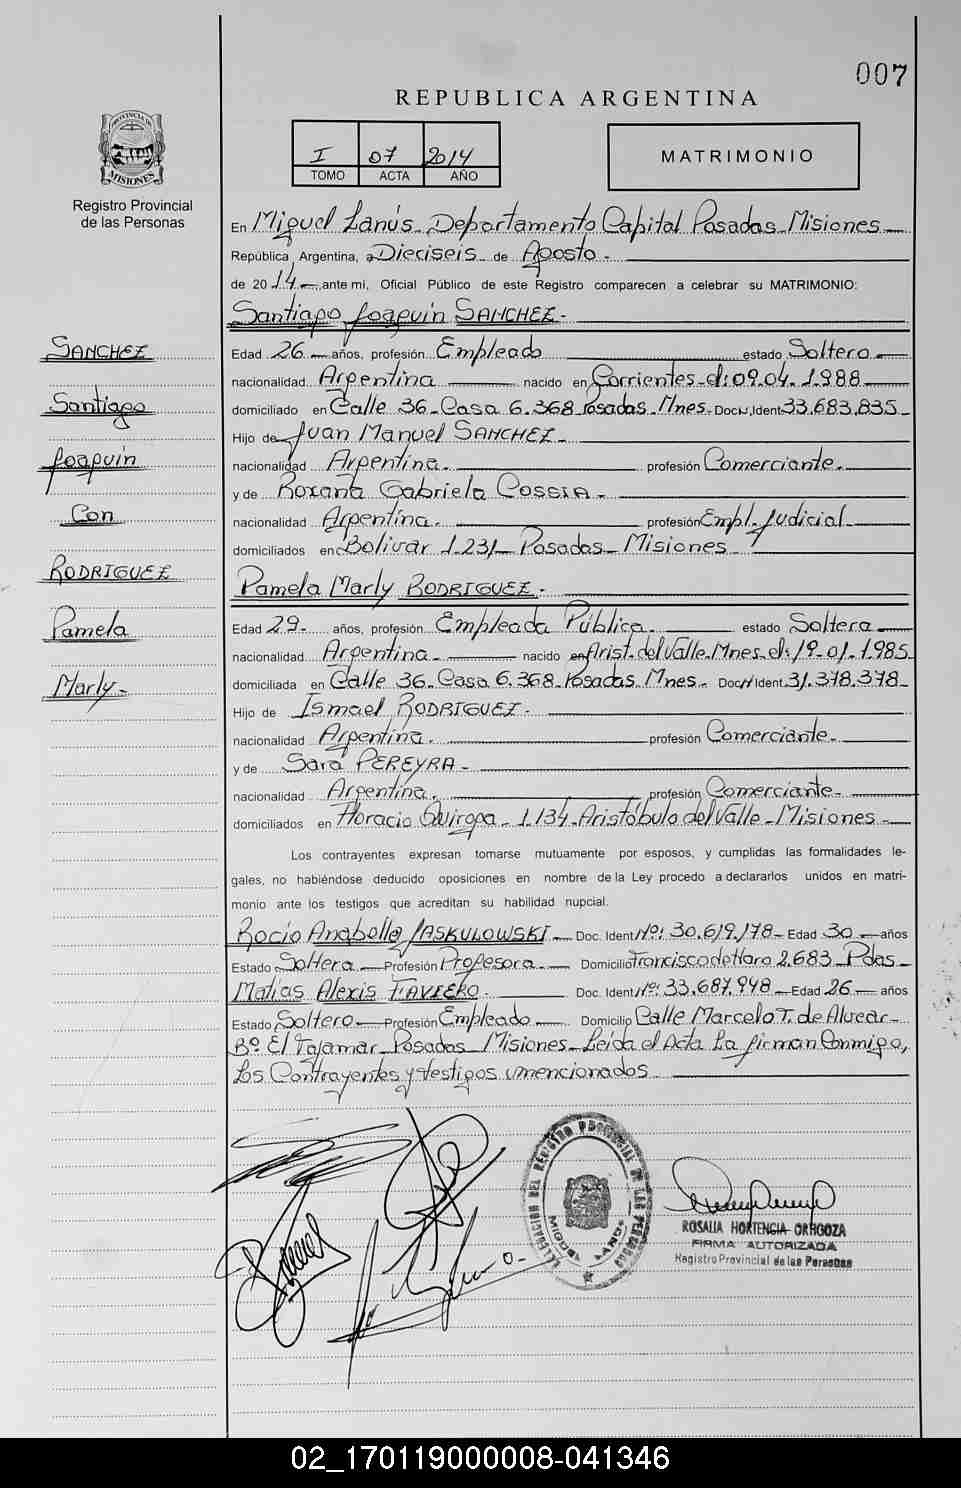 007
REPUBLICA ARGENTINA
I 07 2014
TOMO ACTA AÑO
MATRIMONIO
PROVINCIA DE
MISIONES
Registro Provincial
de las Personas
En Miguel Lanús - Departamento Capital Posadas - Misiones
República Argentina, a Dieciseis de Agosto -
de 2014 ante mi, Oficial Público de este Registro comparecen a celebrar su MATRIMONIO:
Santiago Joaquin SANCHEZ -
Edad 26 años, profesión Empleado estado Soltero
nacionalidad Argentina nacido en Corrientes - el: 09.04.1.988
domiciliado en Calle 36 - Casa 6.368 Posadas - Mnes - Doc. Ident. 33.683.835
Hijo de Juan Manuel SANCHEZ -
nacionalidad Argentina - profesión Comerciante -
y de Roxana Gabriela COSSIA -
nacionalidad Argentina - profesión Empl. Judicial
domiciliados en Bolivar 1.231 - Posadas - Misiones
Pamela Marly RODRIGUEZ -
Edad 29 - años, profesión Empleada Pública - estado Soltera
nacionalidad Argentina - nacido en Arist. del Valle - Mnes - el: 19-01-1.985
domiciliada en Calle 36 - Casa 6.368 - Posadas - Mnes - Doc. Ident. 31.378.378
Hijo de Ismael RODRIGUEZ -
nacionalidad Argentina - profesión Comerciante -
y de Sara PEREYRA -
nacionalidad Argentina - profesión Comerciante -
domiciliados en Horacio Quiroga - 1.134 - Aristóbulo del Valle - Misiones -
Los contrayentes expresan tomarse mutuamente por esposos, y cumplidas las formalidades le-
gales, no habiéndose deducido oposiciones en nombre de la Ley procedo a declararlos unidos en matri-
monio ante los testigos que acreditan su habilidad nupcial.
Rocio Anabella JASKULOWSKI - Doc. Ident. Nº: 30.619.178 - Edad 30 años
Estado Soltera Profesión Profesora - Domicilio Francisco de Haro 2.683 - Pdas -
Matias Alexis FAVIERO - Doc. Ident. Nº: 33.687.948 Edad 26 años
Estado Soltero Profesión Empleado Domicilio Calle Marcelo T. de Alvear -
Bº El Tajamar - Posadas - Misiones - Leída el Acta la firman Conmigo,
los Contrayentes y testigos mencionados
SANCHEZ
Santiago
Joaquin
Con
RODRIGUEZ
Pamela
Marly -
DELEGACION DEL REGISTRO PROVINCIAL DE LAS PERSONAS
MISIONES
ROSALIA HORTENCIA ORTGOZA
FIRMA AUTORIZADA
Registro Provincial de las Personas
02_170119000008-041346